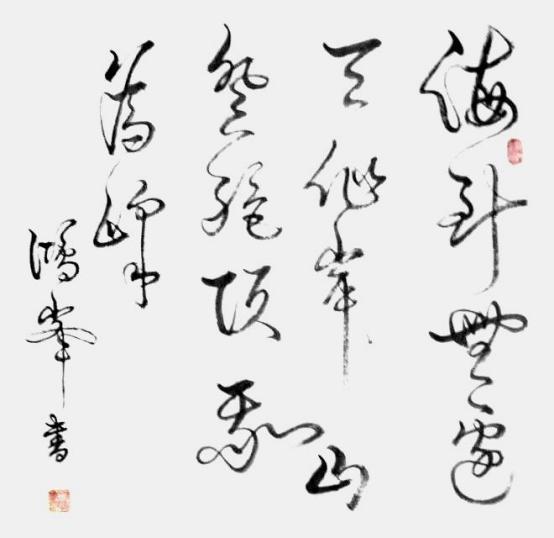 海到無邊
天作岸山
登絕頂我
為峰
鴻峯書